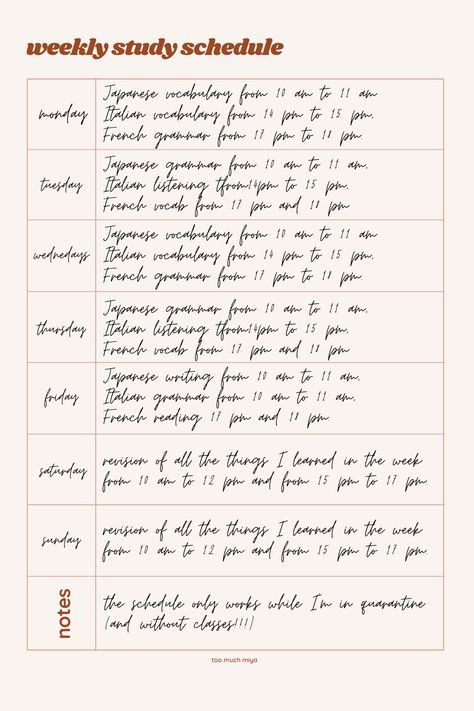 weekly study schedule
monday
Japanese vocabulary from 10 am to 11 am
Italian vocabulary from 14 pm to 15 pm.
French grammar from 17 pm to 18 pm.
tuesday
Japanese grammar from 10 am to 11 am.
Italian listening tfrom14pm to 15 pm.
French vocab from 17 pm and 18 pm
wednedays
Japanese vocabulary from 10 am to 11 am
Italian vocabulary from 14 pm to 15 pm.
French grammar from 17 pm to 18 pm.
thursday
Japanese grammar from 10 am to 11 am.
Italian listening tfrom14pm to 15 pm.
French vocab from 17 pm and 18 pm
friday
Japanese writing from 10 am to 11 am.
Italian grammar from 10 am to 11 am.
French reading 17 pm and 18 pm.
saturday
revision of all the things I learned in the week
from 10 am to 12 pm and from 15 pm to 17 pm
sunday
revision of all the things I learned in the week
from 10 am to 12 pm and from 15 pm to 17 pm
notes
the schedule only works while I'm in quarantine
(and without classes!!!)
too much miya